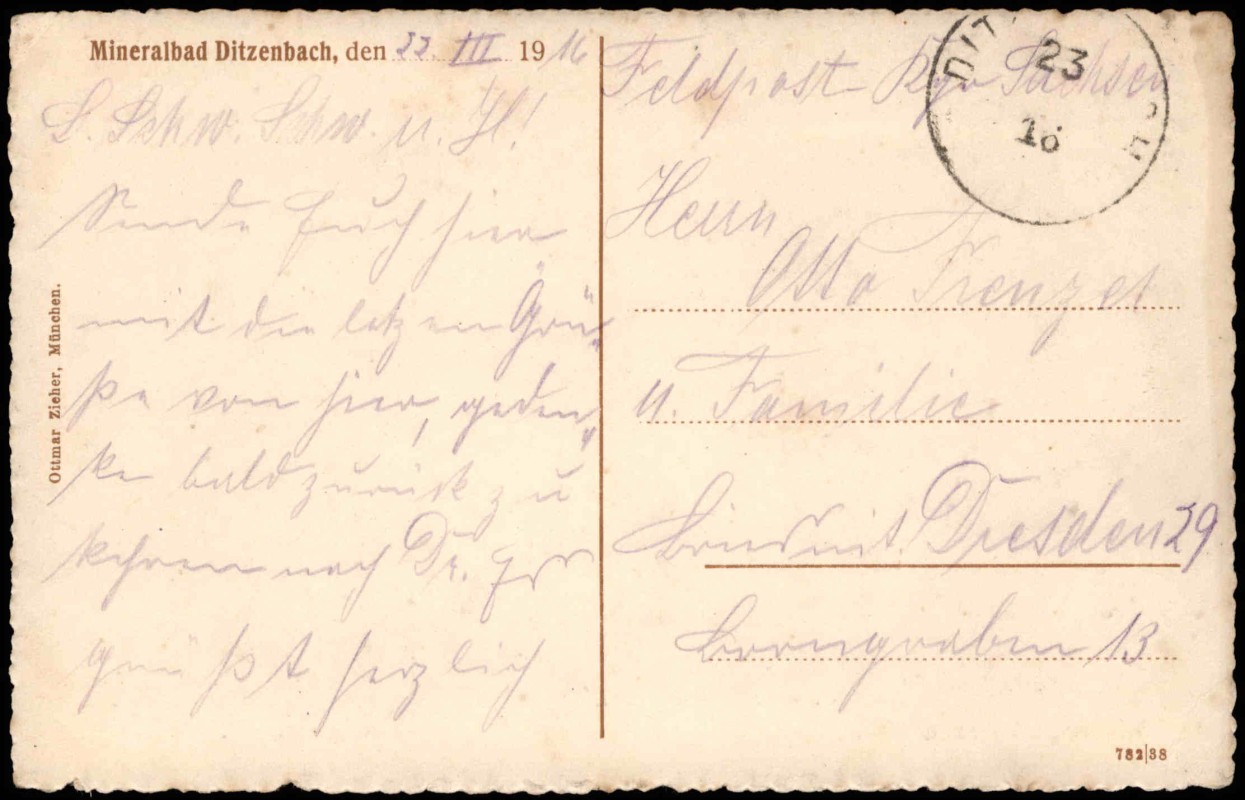 Mineralbad Ditzenbach, den 22. III 1916
L. Schw. Schw. u. Jl!
Sende Euch hier
mit die letzen Grü„
ße von hier, geden„
ke bald zurück zu
kehren nach Dr.
grüßt herzlich
Ottmar Zieher, München.
Feldpost Kgr Sachsen
23
16
Herrn
Otto Frenzel
u. Familie
Briesnitz. Dresden 29
Borngraben 13
782|38